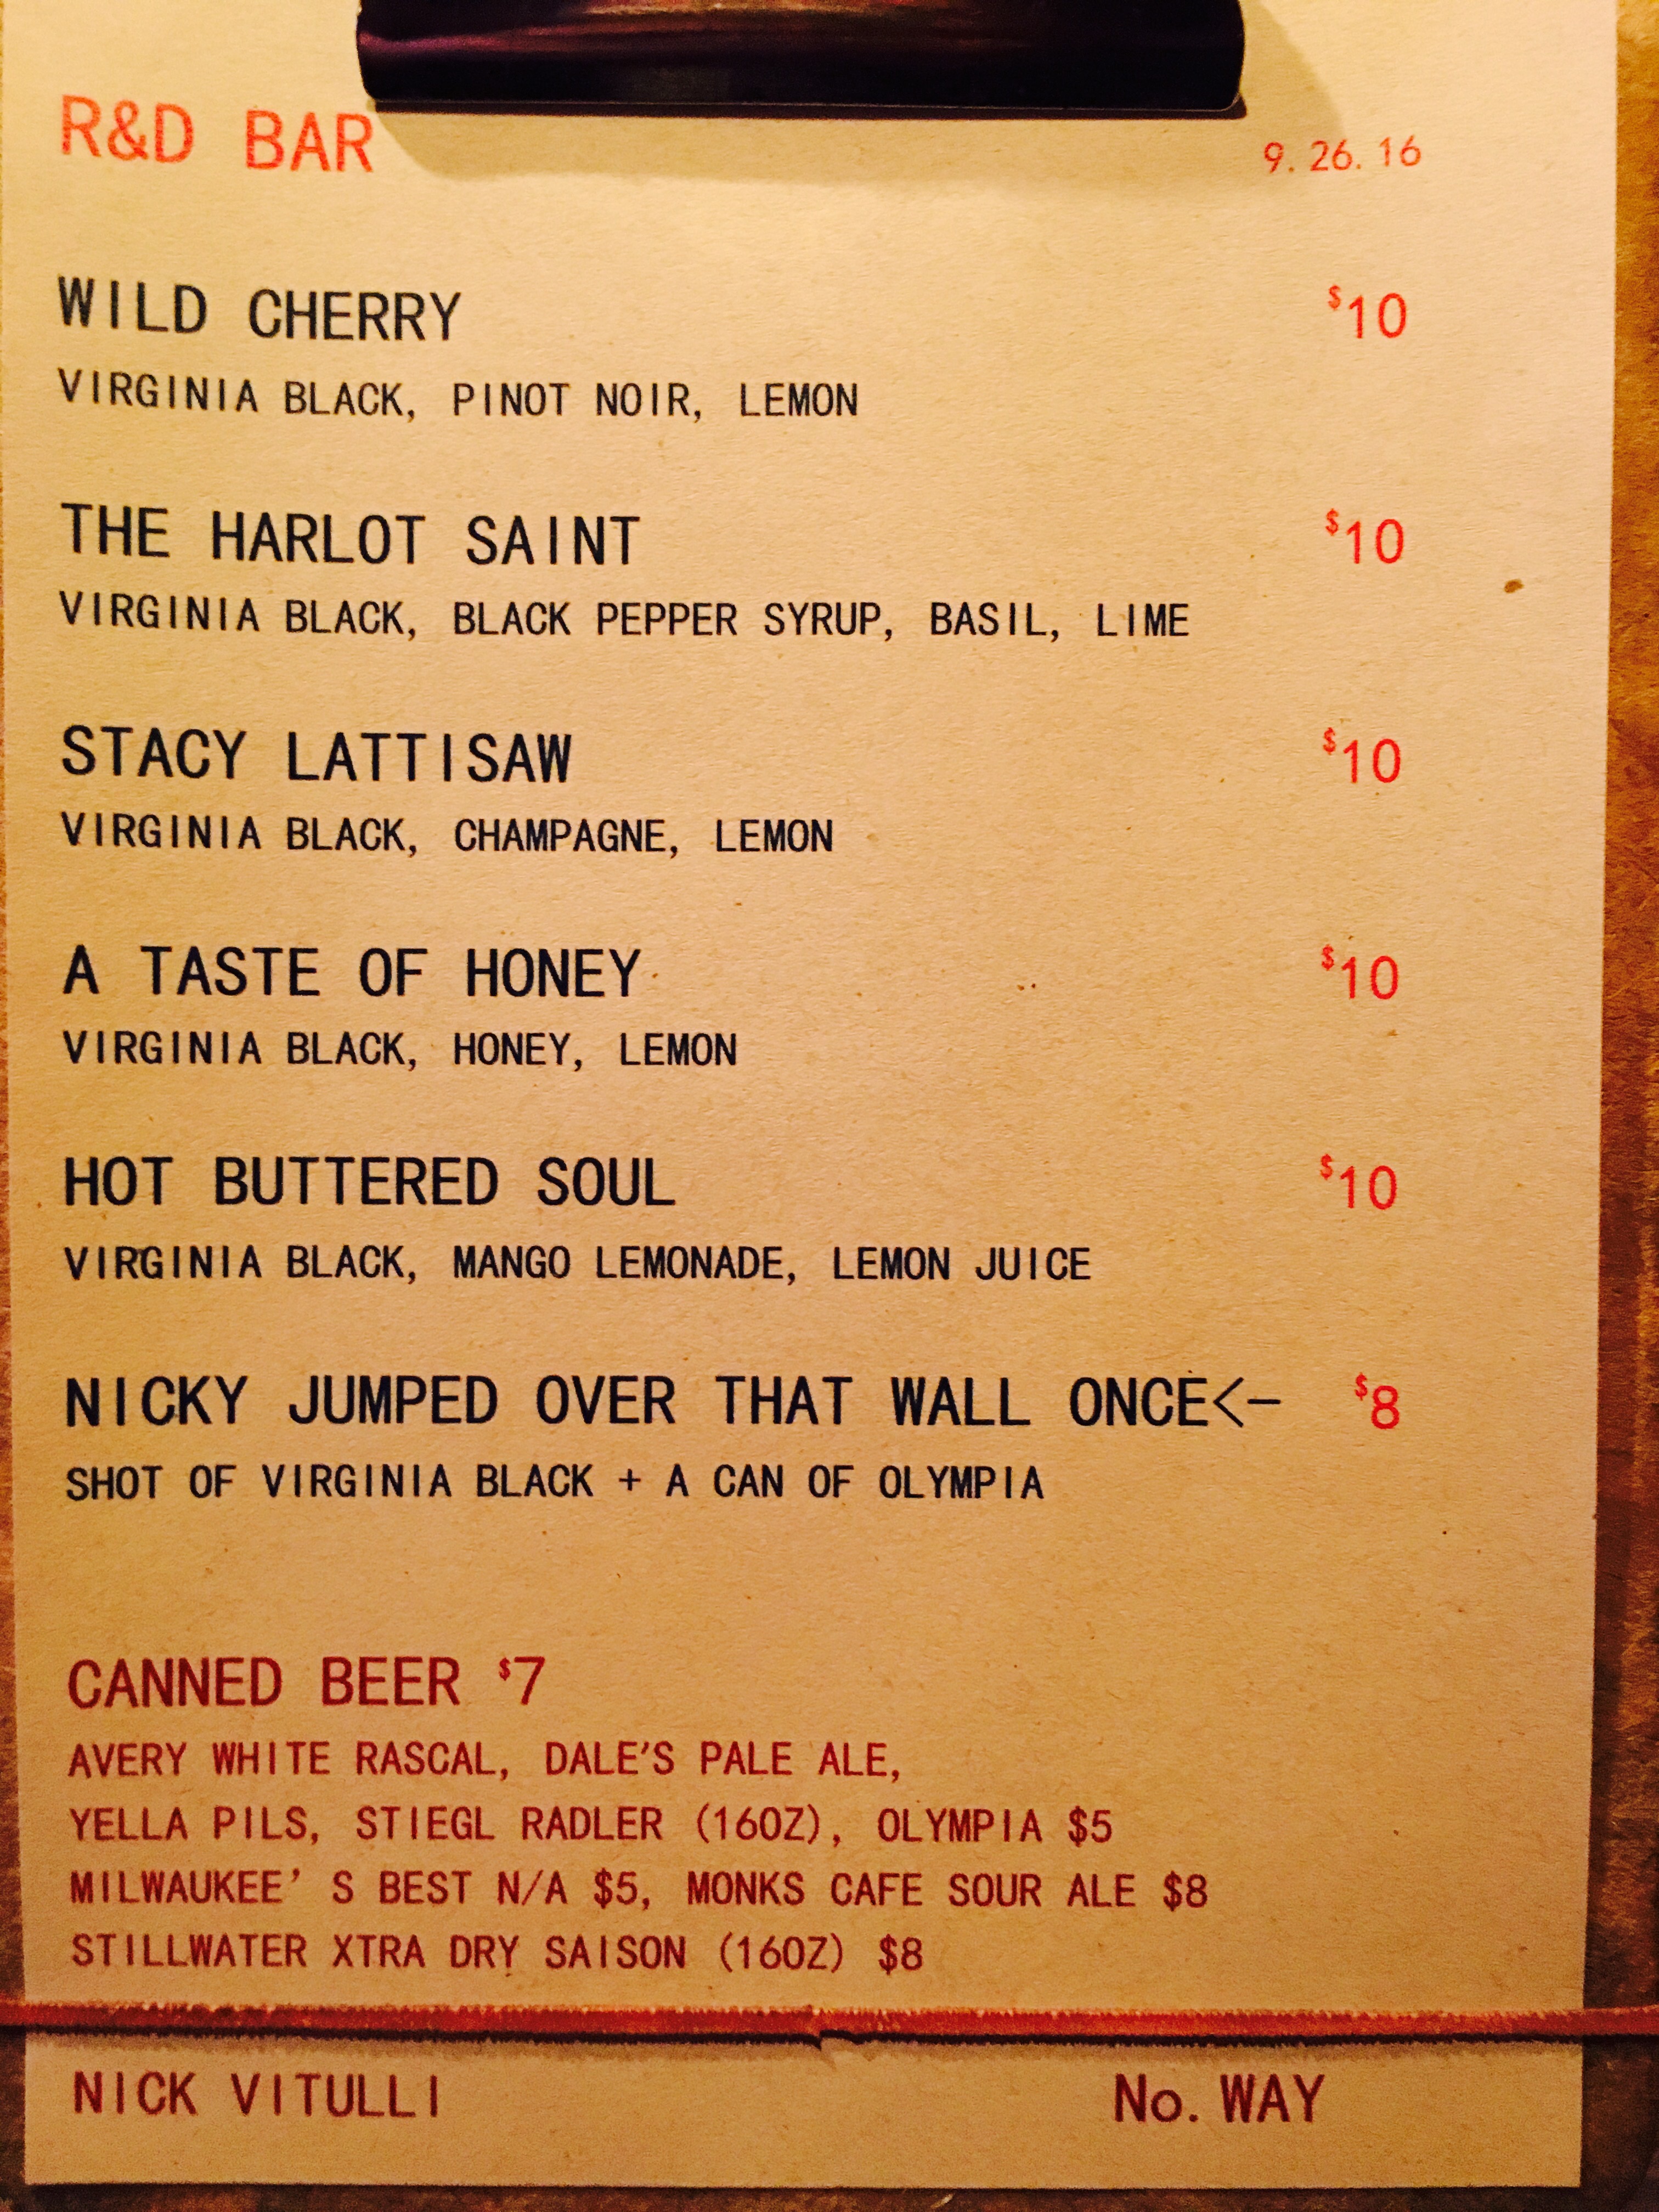 R&D BAR 9.26.16
WILD CHERRY $10
VIRGINIA BLACK, PINOT NOIR, LEMON
THE HARLOT SAINT $10
VIRGINIA BLACK, BLACK PEPPER SYRUP, BASIL, LIME
STACY LATTISAW $10
VIRGINIA BLACK, CHAMPAGNE, LEMON
A TASTE OF HONEY $10
VIRGINIA BLACK, HONEY, LEMON
HOT BUTTERED SOUL $10
VIRGINIA BLACK, MANGO LEMONADE, LEMON JUICE
NICKY JUMPED OVER THAT WALL ONCE<- $8
SHOT OF VIRGINIA BLACK + A CAN OF OLYMPIA
CANNED BEER $7
AVERY WHITE RASCAL, DALE'S PALE ALE,
YELLA PILS, STIEGL RADLER (16OZ), OLYMPIA $5
MILWAUKEE' S BEST N/A $5, MONKS CAFE SOUR ALE $8
STILLWATER XTRA DRY SAISON (16OZ) $8
NICK VITULLI No. WAY